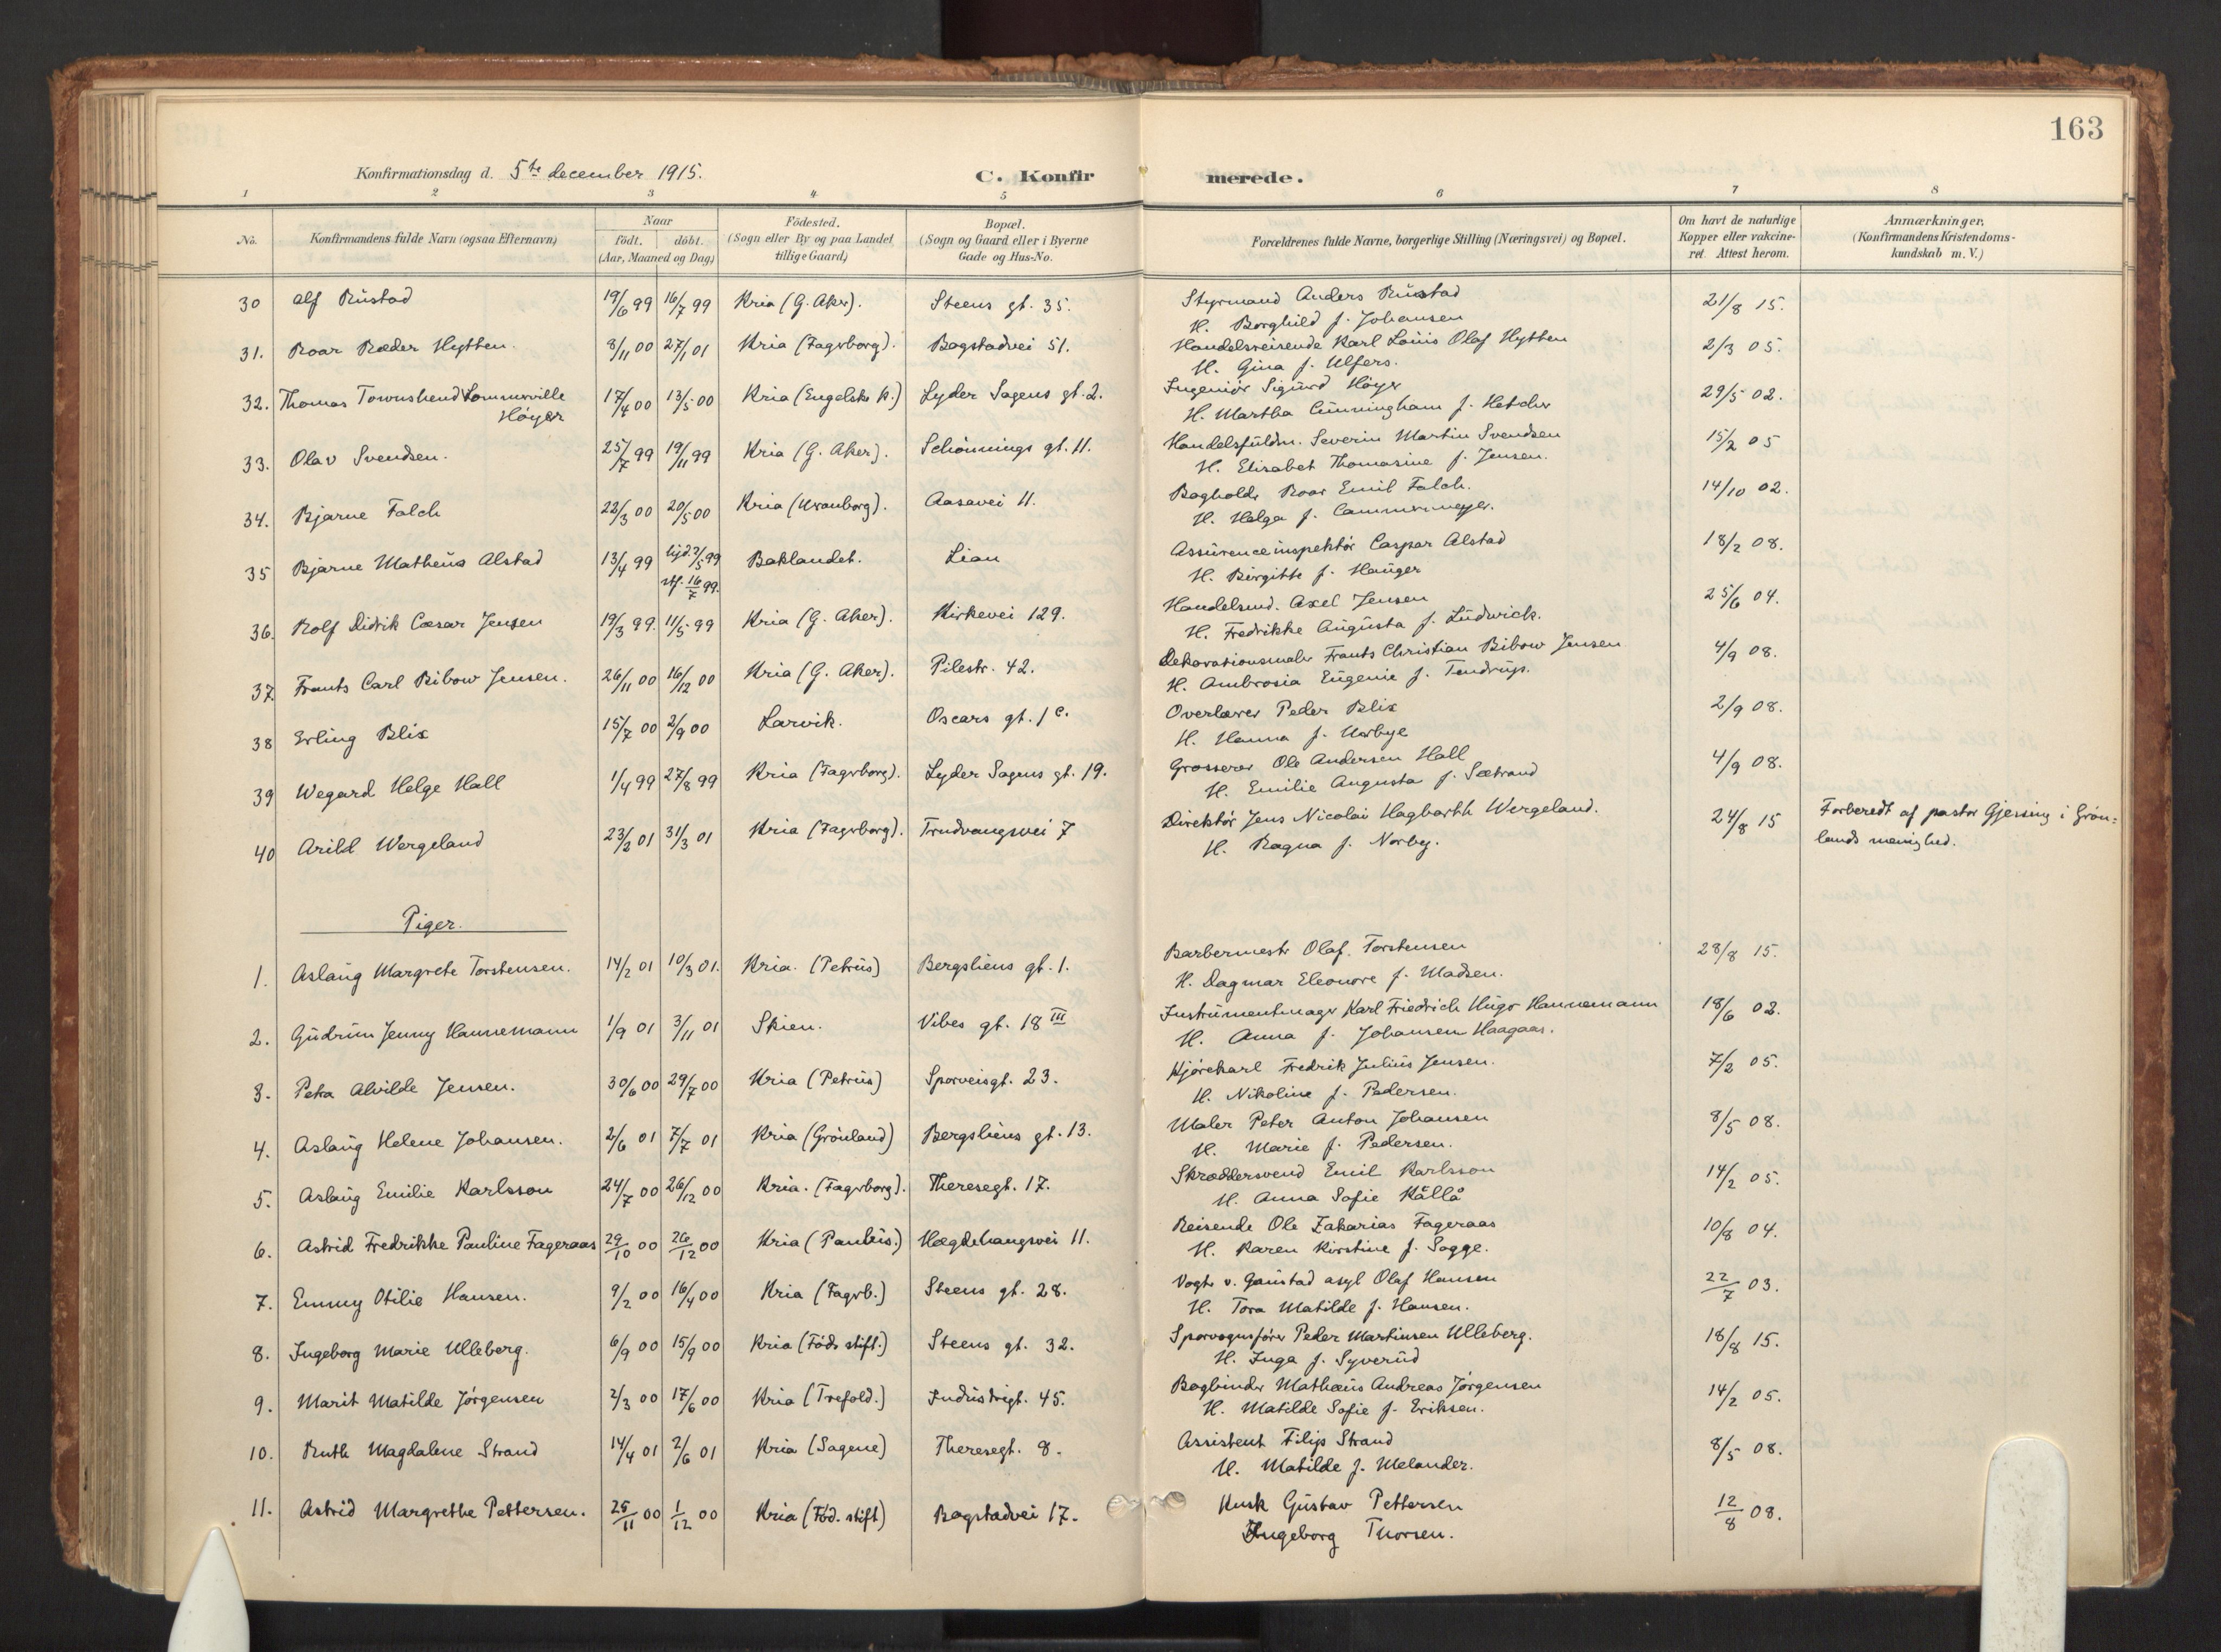 163
Konfirmationsdag d. 5te december 1915. C. Konfirmerede.
1 2 3 4 5 6 7 8
No. Konfirmandens fulde Navn (ogsaa Efternavn) Naar födt. döbt. (Aar, Maaned og Dag) Födested. (Sogn eller By og paa Landet tillige Gaard) Bopæl. (Sogn og Gaard eller i Byerne Gade og Hus-No. Forældrenes fulde Navne, borgerlige Stilling (Næringsvei) og Bopæl. Om havt de naturlige Kopper eller vakcineret. Attest herom. Anmærkninger. (Konfirmandens Kristendomskundskab m. V.)
30 Alf Rustad 19/6 99 16/7 99 Kria (G. Aker). Steens gt. 35. Styrmand Anders Rustad 21/8 15.
H. Borghild f. Johansen
31. Roar Ræder Hytten. 8/11 00 27/1 01 Kria (Fagerborg). Bogstadvei 51. Handelsreisende Karl Louis Olaf Hytten 2/3 05.
H. Gina f. Ulfers.
32. Thomas Townshend Sommerville Höyer 17/4 00 13/5 00 Kria (Engelsk k.) Lyder Sagens gt. 2. Ingeniör Sigurd Höyer 29/5 02.
H. Martha Cunningham f.
33. Olav Svendsen. 25/7 99 19/11 99 Kria (G. Aker). Schönnings gt. 11. Handelsfuldm. Severin Martin Svendsen 15/2 05
H. Elisabet Thomasine f. Jensen.
34. Bjarne Falch 22/3 00 20/5 00 Kria (Uranborg). Aasavei 11. Bogholder Roar Emil Falch. 14/10 02.
H. Helga f. Cammermeyer.
35 Bjarne Matheus Alstad 13/4 99 hjd. ?/5 99 stf. 16/7 99. Baklandet. Lian Assuranceinspektör Caspar Alstad 18/2 08.
H. Birgitte f. Hauger
36. Rolf Didrik Cæsar Jensen 19/3 99. 11/5 99 Kria (G. Aker). Kirkevei 129. Handelsmd. Axel Jensen 25/6 04.
H. Fredrikke Augusta f. Ludwick.
37. Frants Carl Bibow Jensen. 26/11 00 16/12 00 Kria (G. Aker). Pilestr. 42. Dekorationsmaler Frants Christian Bibow Jensen 4/9 08.
H. Ambrosia Eugenie f. Tendrup.
38 Erling Blix 15/7 00 2/9 00 Larvik. Oscars gt. 1c. Overlærer Peder Blix 2/9 08.
H. Hanna f. Norbye
39 Wegard Helge Hall 1/4 99 27/8 99 Kria (Fagerborg). Lyder Sagens gt. 19. Grosserer Ole Andersen Hall 4/9 08.
H. Emilie Augusta f. Sætrand
40 Arild Wergeland 23/2 01 31/3 01 Kria (Fagerborg). Trudvangsvei 7 Direktör Jens Nicolai Hagbarth Wergeland. 24/8 15 Forberedt af pastor Gjessing i Grön=
H. Ragna f. Norby. lands menighed.
Piger.
1. Aslaug Margrete Torstensen. 14/2 01 10/3 01. Kria. (Petrus) Bergsliens gt. 1. Barbermestr Olaf Torstensen 28/8 15.
H. Dagmar Eleonore f. Madsen.
2. Gudrun Jenny Hannemann 1/9 01 3/11 01 Skien. Vibes gt. 18 III Instrumentmager Karl Friedrich Hugo Hannemann 18/6 02.
H. Anna f. Johansen Haagaas.
3. Petra Alvilde Jensen. 30/6 00 29/7 00 Kria (Petrus) Sporveisgt. 23. Kjörekarl Fredrik Julius Jensen. 7/2 05.
H. Nikoline f. Pedersen.
4. Aslaug Helene Johansen. 2/6 01 7/7 01 Kria (Grönland) Bergsliens gt. 13. Maler Peter Anton Johansen 8/5 08.
H. Marie f. Pedersen.
5. Aslaug Emilie Karlsson 24/7 00 26/12 00 Kria. (Fagerborg). Theresegt. 17. Skræddersvend Emil Karlsson 14/2 05.
H. Anna Sofie Kållå
6. Astrid Fredrikke Pauline Fageraas 29/10 00 26/12 00 Kria (Paulus.) Hægdehaugsvei 11. Reisende Ole Zakarias Fageraas 10/8 04.
H. Karen Kirstine f. Sogge.
7. Emmy Otilie Hansen. 9/2 00 16/4 00 Kria (Fagerb.) Steens gt. 28. Vogter v. Gaustad asyl Olaf Hansen 22/7 03.
H. Tora Matilde f. Hansen.
8. Ingeborg Marie Ulleberg. 6/9 00 15/9 00 Kria (Föds stift.) Steens gt. 32. Sporvognsfører Peder Martinsen Ulleberg. 18/8 15.
H. Inga f. Syverud
9. Marit Matilde Jörgensen 2/3 00 17/6 00 Kria (Trefold.) Industrigt. 45. Bogbinder Mathæus Andreas Jörgensen 14/2 05.
H. Matilde Sofie f. Eriksen.
10. Ruth Magdalene Strand 14/4 01 2/6 01 Kria (Sagene) Theresegt. 8. Assistent Filip Strand 8/5 08.
H. Matilde f. Melander.
11. Astrid Margrethe Pettersen. 25/11 00 1/12 00 Kria (Föd. stift) Bogstadvei 17. Kusk Gustav Pettersen 12/8 08.
Ingeborg Thorsen.